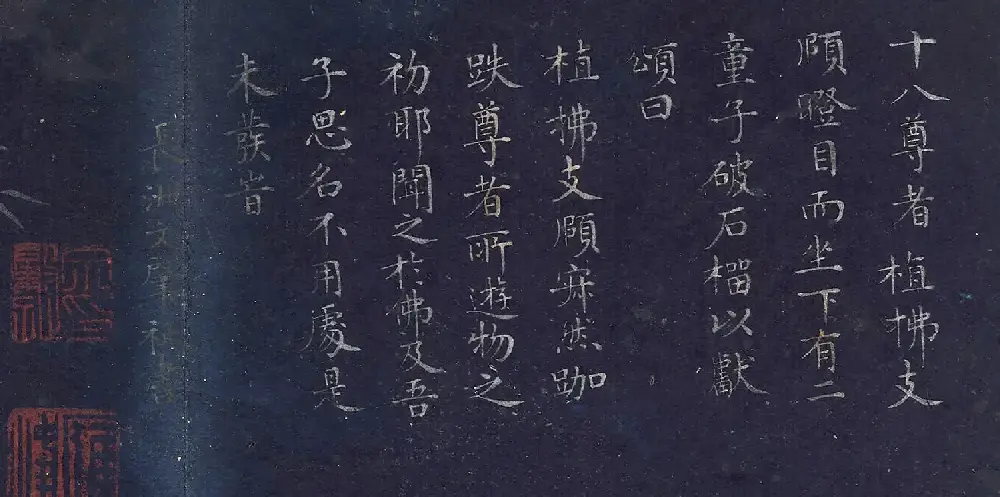 十八尊者植拂支
頤瞪目而坐下有二
童子破石榴以獻
頌曰
植拂支頤寂然跏
趺尊者所遊物之
初耶聞之於佛及吾
子思名不用處是
未發時
長洲文